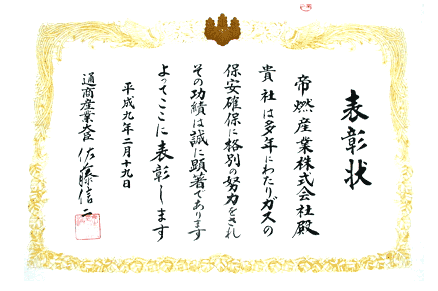 表彰状
帝燃産業株式会社殿
貴社は多年にわたりガスの
保安確保に格別の努力をされ
その功績は誠に顕著であります
よってここに表彰します
平成九年二月十九日
通商産業大臣 佐藤信二